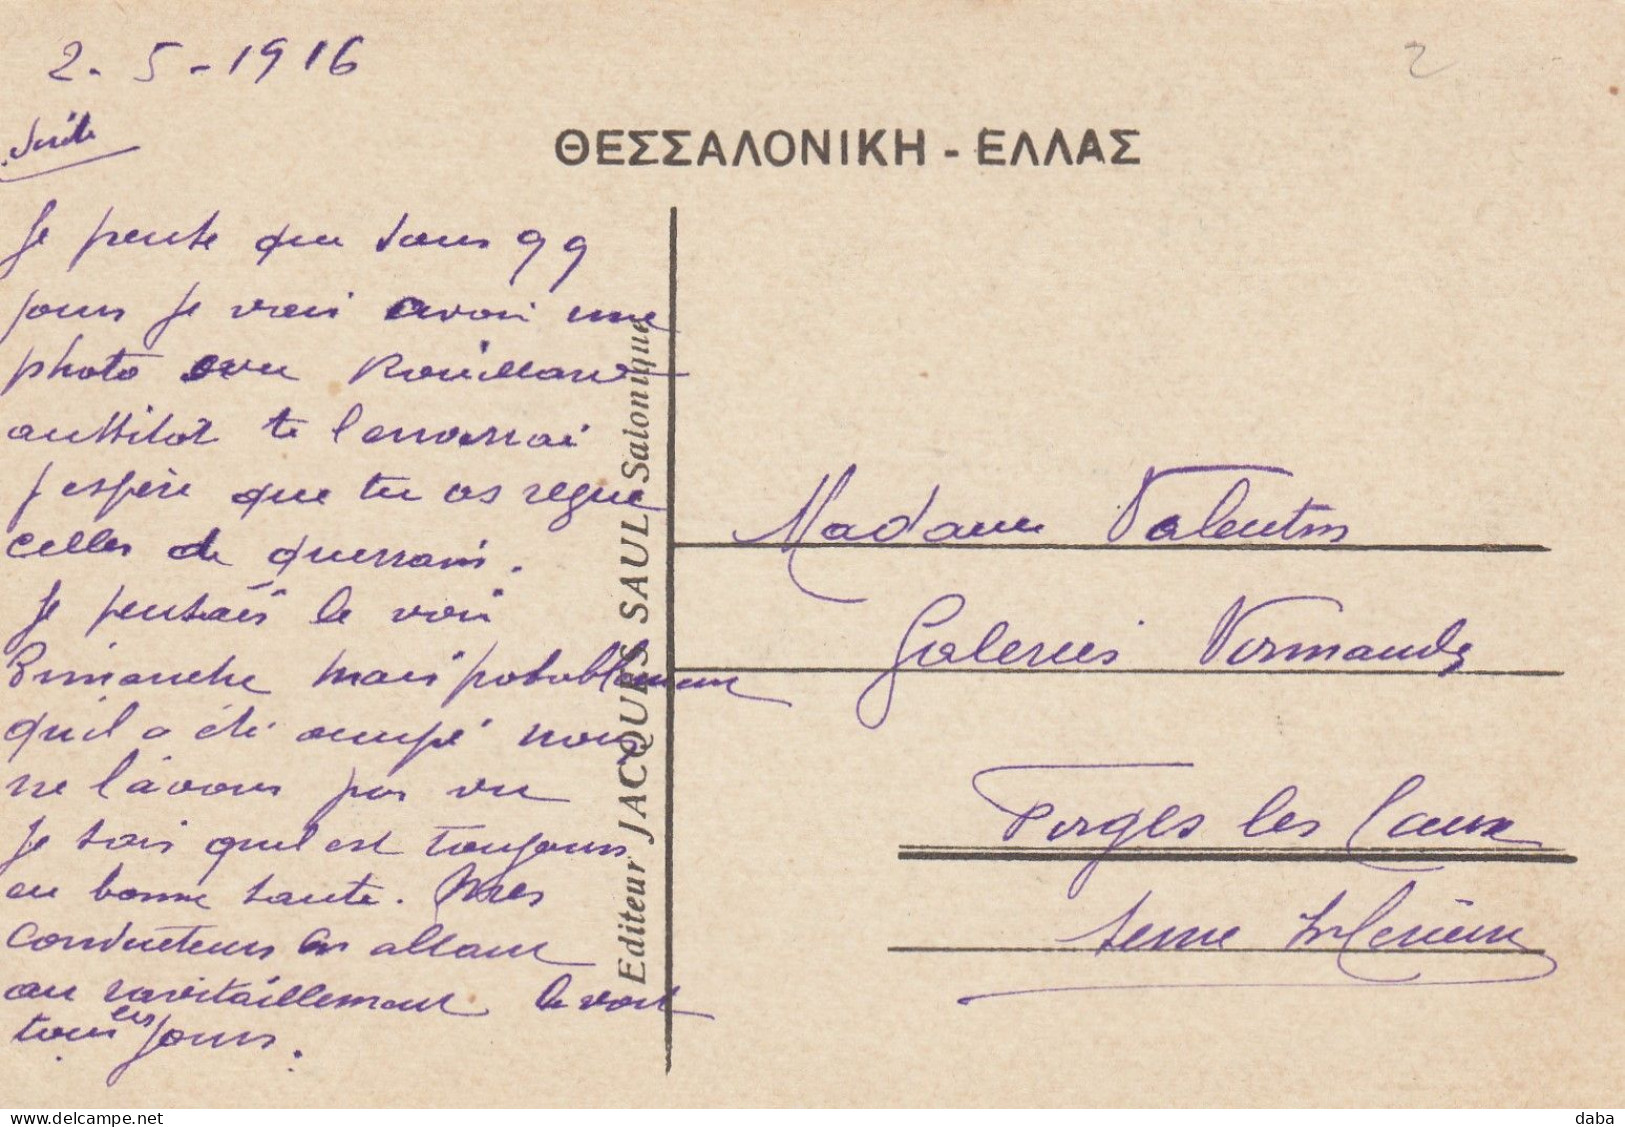 2-5-1916
2
Suite
ΘΕΣΣΑΛΟΝΙΚΗ - ΕΛΛΑΣ
Je pense que dans qq
jours je vais avoir une
photo avec Rouilland
aussitôt te l'enverrai
J'espère que tu as reçue
celles de
Je pensais le voir
Dimanche mais probablement
qu'il a été occupé nous
ne l'avons pas vu
Je sais qu'il est toujours
en bonne santé. Nos
conducteurs en allant
au ravitaillement le voit
tous les jours.
Editeur JACQUES SAUL Salonique
Madame Valentin
Galeries Normandes
Forges les Eaux
Seine Inférieure
delcampe.net
daba